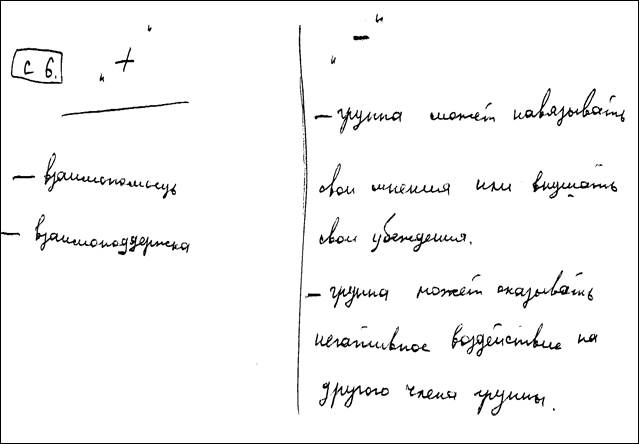 С 6.
"+"
– взаимопомощь
– взаимоподдержка
"–"
– группа может навязывать
свои мнения или внушать
свои убеждения.
– группа может оказывать
негативное воздействие на
другого члена группы.